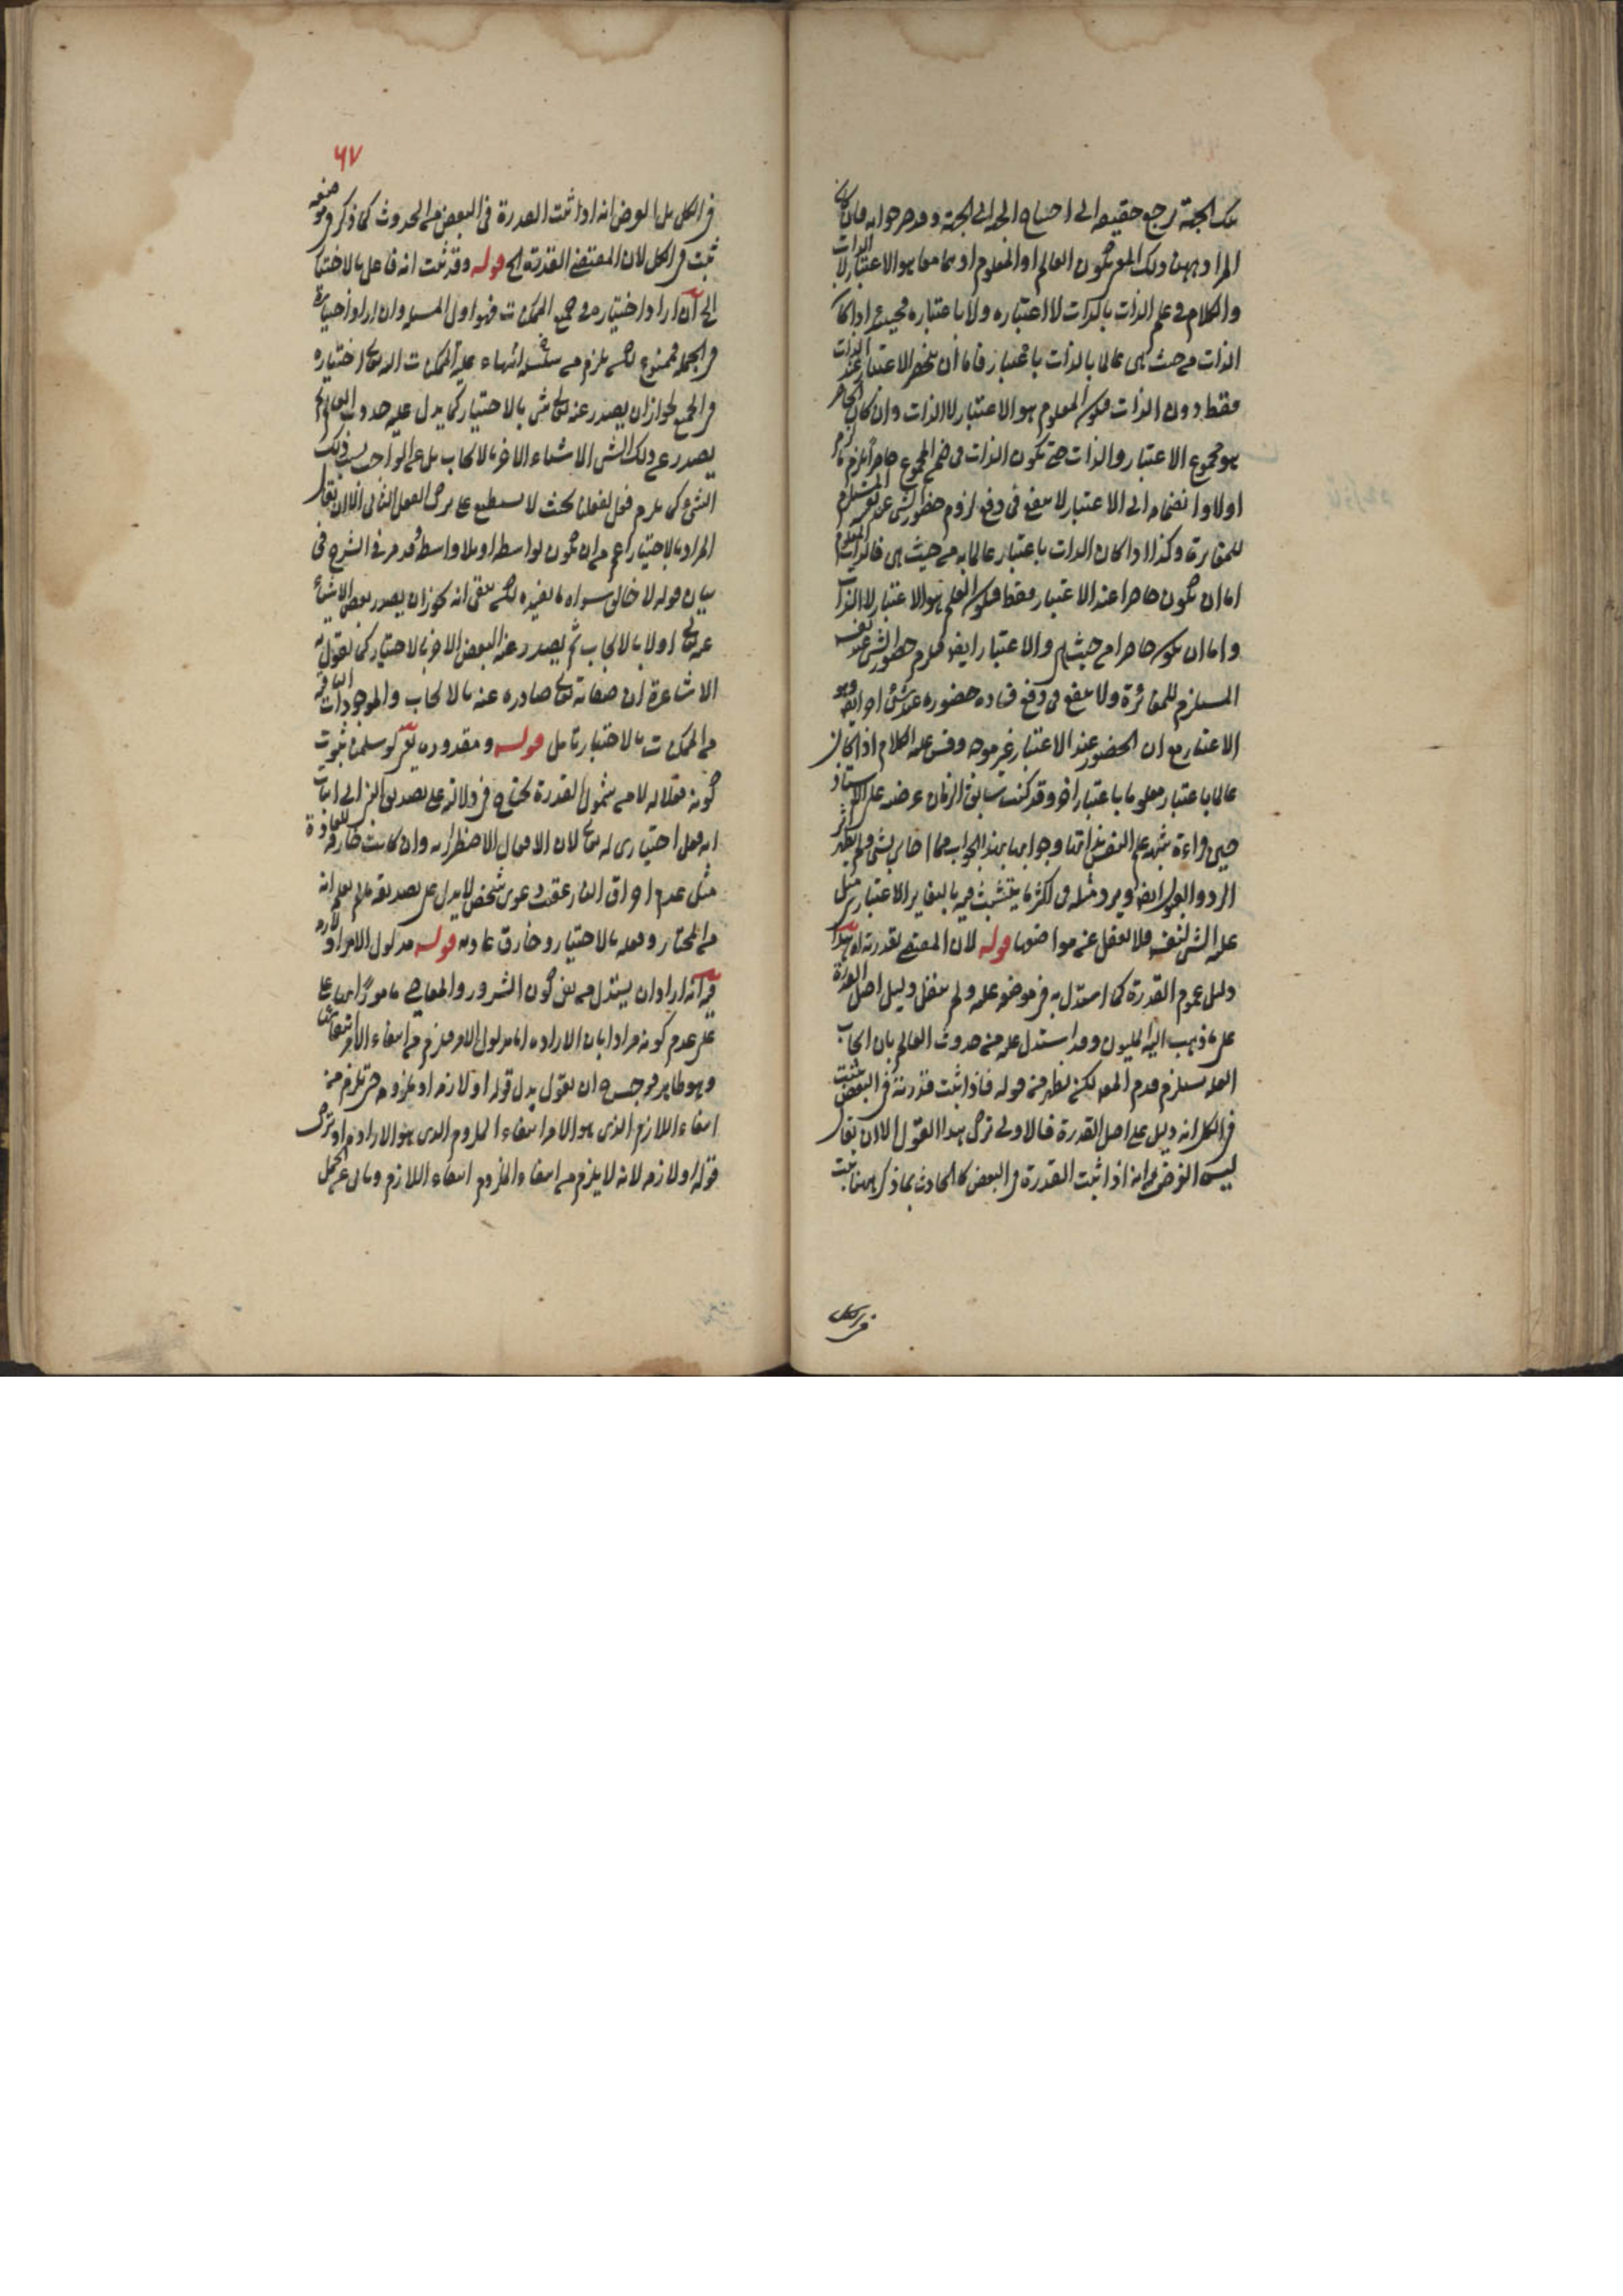 تلك الجهة رجع حقيقة الى احتياج الجهة الى الجهة وقد مر جوابه فان كان
المراد بهذا ذلك المعنى فيكون العالم او المعلوم او هما معا هو الاعتبار لا الذات
والكلام في علم الذات بالذات لا اعتباره ولا باعتباره فحينئذ اذا كان
الذات من حيث هي عالما بالذات باعتبار فاما ان يحضر الاعتبار عند الذات
فقط دون الذات فيكون المعلوم هو الاعتبار لا الذات وان كان الحاضر
هو مجموع الاعتبار والذات حتى يكون الذات في ضمن المجموع حاضرا يلزم
اولا وانضمامه الى الاعتبار لا ينفع في دفع لزوم حضور الشئ عن نفسه المستلزم
للمغايرة وكذا اذا كان الذات باعتبار عالما به من حيث هي فالذات المعلوم
اما ان يكون حاضرا عند الاعتبار فقط فيكون العلم هو الاعتبار لا الذات
واما ان يكون حاضرا من حيث هي والاعتبار ايضا فيلزم حضور الشئ عند نفسه
المستلزم للمغايرة ولا ينفع في دفع فساده حضوره عند شئ اخر ايضا وهو
الاعتبار مع ان الحضور عند الاعتبار غير موجه وقس عليه الكلام اذا كان
عالما باعتبار معلوما باعتبار اخر وقد كنت سابق الزمان عرضته على الاستاذ
حين قراءة
الرد والقول ايضا ويرد مثله في اكثر ما يتشبث فيه بالتغاير الاعتباري مثل
علم الشئ لنفسه فلا تغفل عن مواضعها قوله لان المقتضى لقدرته اه هذا
دليل عموم القدرة كما استدل به في موضعه عليه ولم ينقل دليل اصل القدرة
على ما ذهب اليه المليون وقد استدل عليه من حدوث العالم بان ايجاب
العلة يستلزم قدم المعلول لكن يظهر من قوله فاذا ثبت قدرته في البعض ثبتت
في الكل انه دليل على اصل القدرة فالاولى ترك هذا القول الا ان يقال
ليس الغرض انه اذا ثبت القدرة في البعض كالحادث بما ذكر ههنا ثبت
في الكل
٦٧
في الكل بل الغرض انه اذا ثبت القدرة في البعض من الحدوث كما ذكر في موضعه
ثبت في الكل لان المقتضى القدرة الخ قوله وقد ثبت انه فاعل بالاختيار
الخ ان اراد اختياره في جميع الممكنات فهو اول المسئلة وان اراد اختياره
في الجملة فممنوع لكن يلزم من انتهاء علية الممكنات اليه تعالى اختياره
في الجميع لجواز ان يصدر عنه تعالى شئ بالاختيار كما يدل عليه حدوث العالم ثم
يصدر عن ذلك الشئ الاشياء الاخر بالايجاب بل عن الواجب بسبب ذلك
الشئ كمن يلزم فعل لفعل بحيث لا يستطيع على ترك الفعل الثاني الا ان يقال
المراد بالاختيار اعم من ان يكون بواسطة او بلا واسطة وقد مر في الشرح في
بيان قوله لا خالق سواه ما يفيده لكن بقي انه يجوز ان يصدر بعض الاشياء
عنه تعالى اولا بالايجاب ثم يصدر عنه البعض الاخر بالاختيار كما يقول به
الاشاعرة ان صفاته تعالى صادرة عنه بالايجاب والموجودات الباقية
من الممكنات بالاختيار تأمل قوله ومقدوره لو سلمنا ثبوت
كونه فعلا له لا من شمول القدرة يحتاج في دلالته على تصديق النبي الى اثبات
انه فعل اختياري له تعالى لان الافعال الاضطرارية وان كانت خارقة للعادة
مثل عدم احراق النار عقيب دعوى شخص لا يدل على تصديقه ما لم يعلم انه
من المختار وفعله بالاختيار وخارق عادته قوله مدلول الامر او لازمه
فيه انه اراد ان يستدل من نفي كون الشرور والمعاصي مأمورا بها على
على عدم كونه مرادا بان الارادة اما مدلول الامر فيلزم من انتفاء الامر انتفائها
وهو ظاهر فوجب ان يقول بدل قوله او لازمه او ملزومه حتى يلزم من
انتفاء اللازم الذي هو الامر انتفاء الملزوم الذي هو الارادة او ترك
قوله او لازمه لانه لا يلزم من انتفاء الملزوم انتفاء اللازم